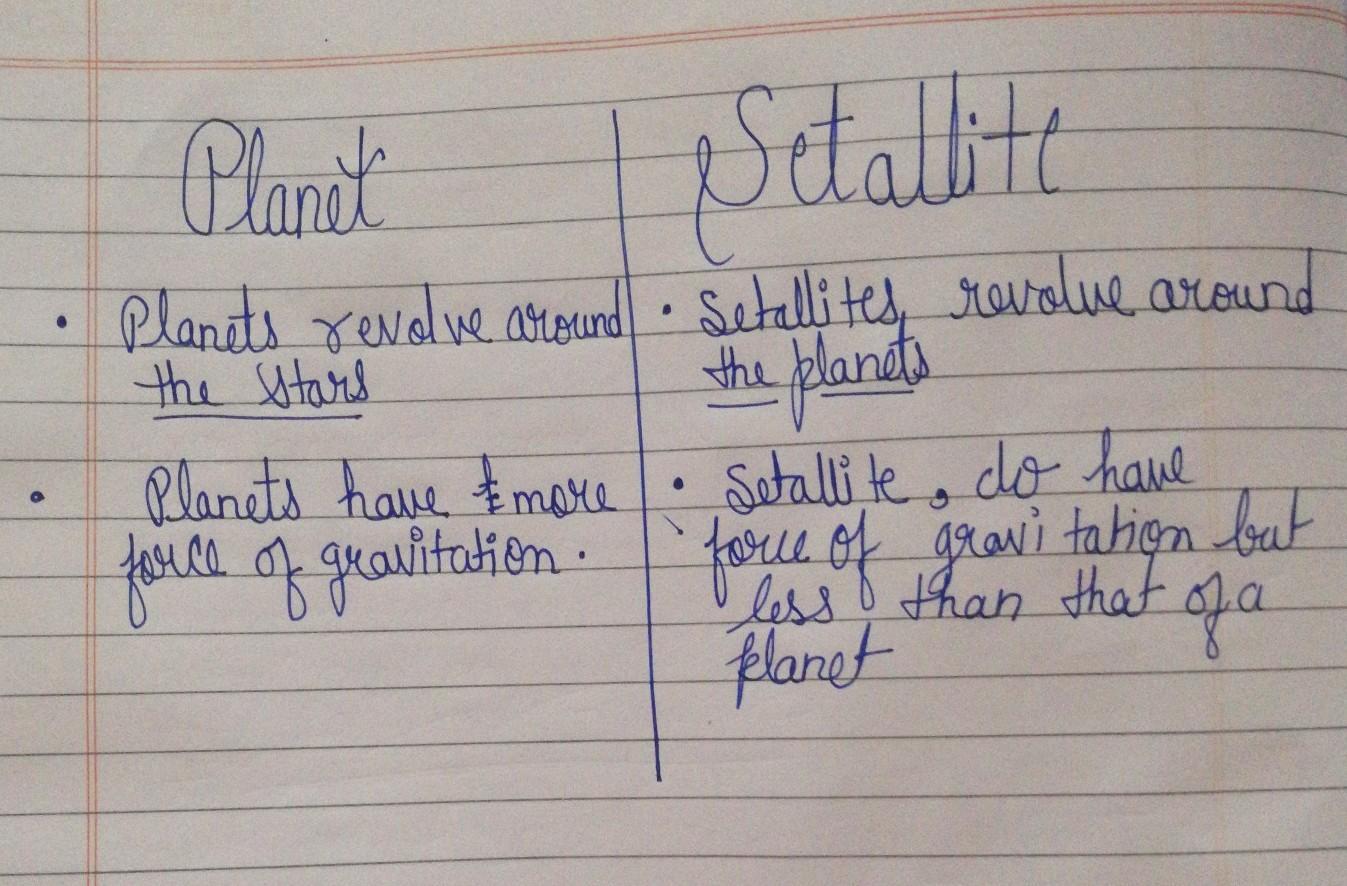 Planet
Planets revolve around
the stars
Planets have more
force of gravitation.
Setallite
Setallites, revolve around
the planets
Setallite, do have
force of gravitation but
less than that of a
planet